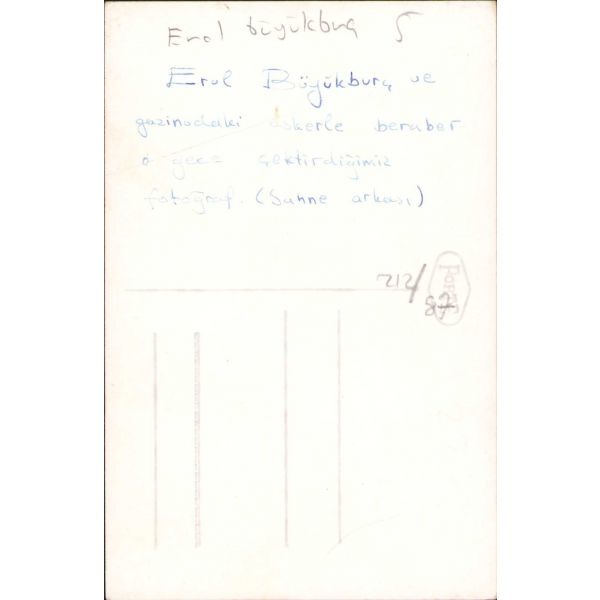 Erol büyükburç 5
Erol Büyükburç ve
gazinodaki askerle beraber
o gece çektirdiğimiz
fotoğraf. (Sahne arkası)
212/87